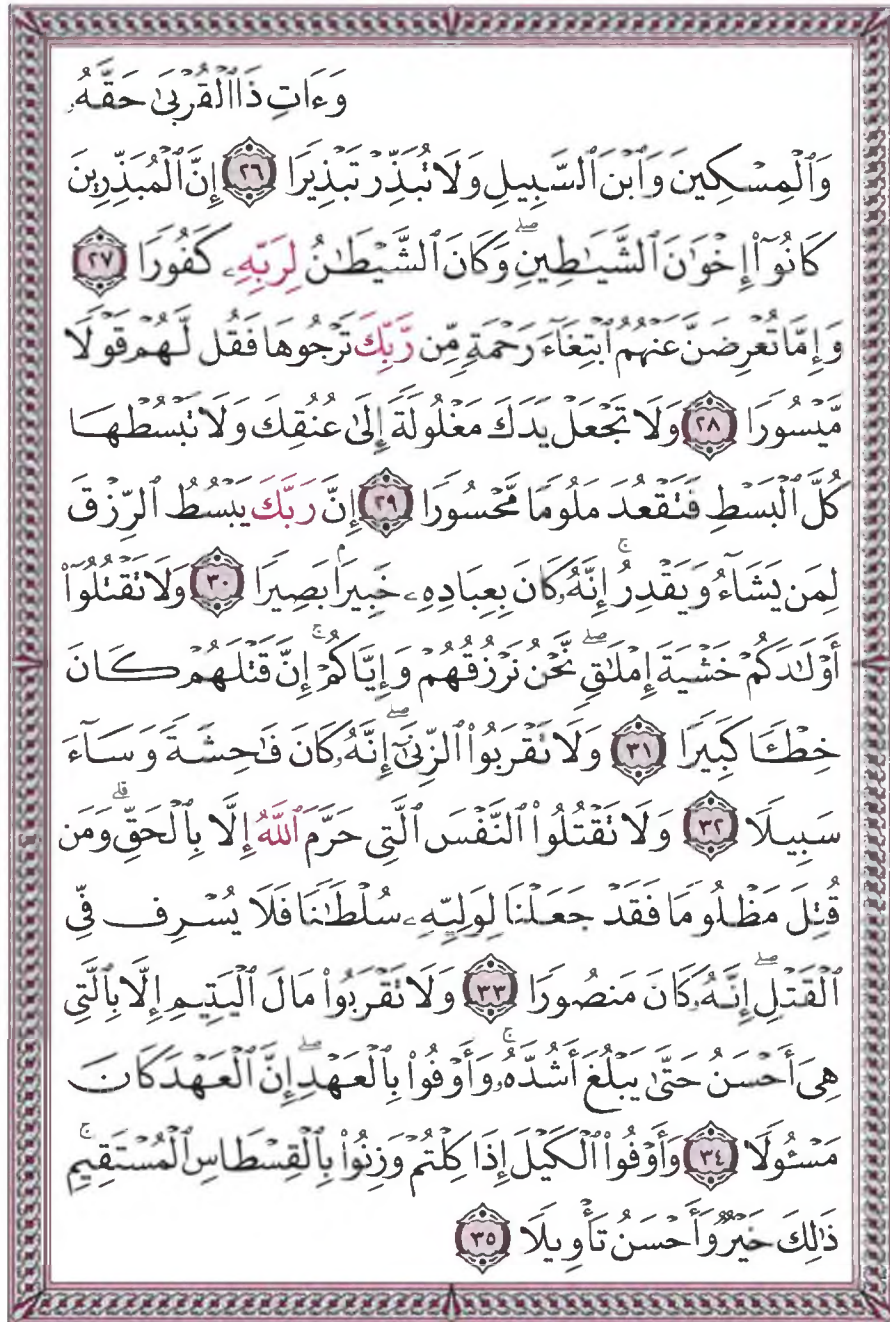 وَءَاتِ ذَا ٱلْقُرْبَىٰ حَقَّهُۥ
وَٱلْمِسْكِينَ وَٱبْنَ ٱلسَّبِيلِ وَلَا تُبَذِّرْ تَبْذِيرًا ٢٦ إِنَّ ٱلْمُبَذِّرِينَ
كَانُوٓا۟ إِخْوَٰنَ ٱلشَّيَـٰطِينِ ۖ وَكَانَ ٱلشَّيْطَـٰنُ لِرَبِّهِۦ كَفُورًا ٢٧
وَإِمَّا تُعْرِضَنَّ عَنْهُمُ ٱبْتِغَآءَ رَحْمَةٍ مِّن رَّبِّكَ تَرْجُوهَا فَقُل لَّهُمْ قَوْلًا
مَّيْسُورًا ٢٨ وَلَا تَجْعَلْ يَدَكَ مَغْلُولَةً إِلَىٰ عُنُقِكَ وَلَا تَبْسُطْهَا
كُلَّ ٱلْبَسْطِ فَتَقْعُدَ مَلُومًا مَّحْسُورًا ٢٩ إِنَّ رَبَّكَ يَبْسُطُ ٱلرِّزْقَ
لِمَن يَشَآءُ وَيَقْدِرُ ۚ إِنَّهُۥ كَانَ بِعِبَادِهِۦ خَبِيرًۢا بَصِيرًا ٣٠ وَلَا تَقْتُلُوٓا۟
أَوْلَـٰدَكُمْ خَشْيَةَ إِمْلَـٰقٍ ۖ نَّحْنُ نَرْزُقُهُمْ وَإِيَّاكُمْ ۚ إِنَّ قَتْلَهُمْ كَانَ
خِطْـًٔا كَبِيرًا ٣١ وَلَا تَقْرَبُوا۟ ٱلزِّنَىٰٓ ۖ إِنَّهُۥ كَانَ فَـٰحِشَةً وَسَآءَ
سَبِيلًا ٣٢ وَلَا تَقْتُلُوا۟ ٱلنَّفْسَ ٱلَّتِى حَرَّمَ ٱللَّهُ إِلَّا بِٱلْحَقِّ ۗ وَمَن
قُتِلَ مَظْلُومًا فَقَدْ جَعَلْنَا لِوَلِيِّهِۦ سُلْطَـٰنًا فَلَا يُسْرِف فِّى
ٱلْقَتْلِ ۖ إِنَّهُۥ كَانَ مَنصُورًا ٣٣ وَلَا تَقْرَبُوا۟ مَالَ ٱلْيَتِيمِ إِلَّا بِٱلَّتِى
هِىَ أَحْسَنُ حَتَّىٰ يَبْلُغَ أَشُدَّهُۥ ۚ وَأَوْفُوا۟ بِٱلْعَهْدِ ۖ إِنَّ ٱلْعَهْدَ كَانَ
مَسْـُٔولًا ٣٤ وَأَوْفُوا۟ ٱلْكَيْلَ إِذَا كِلْتُمْ وَزِنُوا۟ بِٱلْقِسْطَاسِ ٱلْمُسْتَقِيمِ ۚ
ذَٰلِكَ خَيْرٌ وَأَحْسَنُ تَأْوِيلًا ٣٥